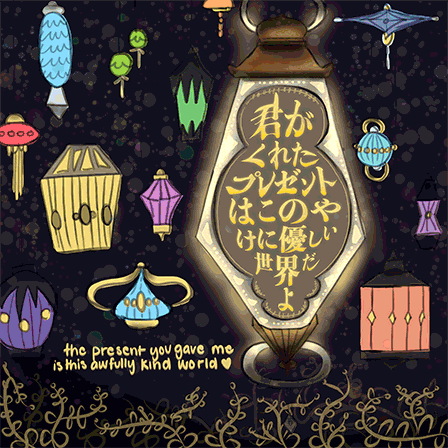 君が
くれた
プレゼント
はこのや
けに優しい
世界だ
よ
the present you gave me
is this awfully kind world